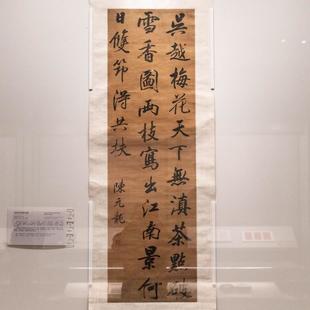 吳越梅花天下無滇茶點破
雪香圖兩枝寫出江南景何
日雙笻得共扶
陳元龍